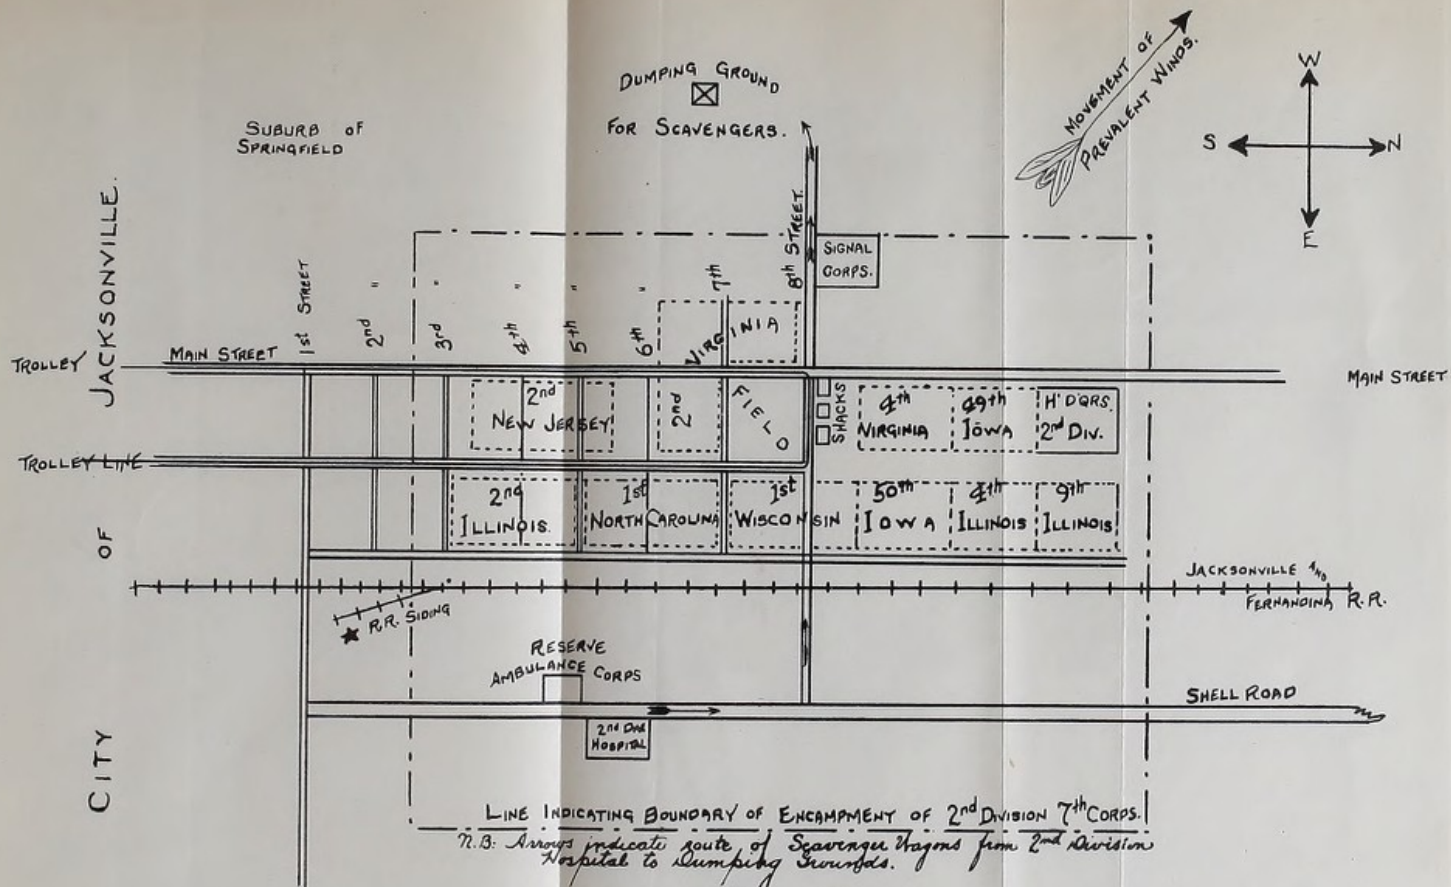 DUMPING GROUND
FOR SCAVENGERS.
MOVEMENT OF
PREVALENT WINDS.
W
S
N
E
SUBURB OF
SPRINGFIELD
CITY OF JACKSONVILLE.
1st STREET
2nd "
3rd "
4th "
5th "
6th "
7th
8th STREET.
SIGNAL
CORPS.
VIRGINIA
TROLLEY
MAIN STREET
MAIN STREET
2nd
NEW JERSEY
2nd
FIELD
SHACKS
4th
VIRGINIA
49th
IOWA
H'D'QRS.
2nd DIV.
TROLLEY LINE
2nd
ILLINOIS.
1st
NORTH CAROLINA
1st
WISCONSIN
50th
IOWA
4th
ILLINOIS
9th
ILLINOIS
JACKSONVILLE AND
FERNANDINA R.R.
R.R. SIDING
RESERVE
AMBULANCE CORPS
SHELL ROAD
2nd DIV
HOSPITAL
LINE INDICATING BOUNDARY OF ENCAMPMENT OF 2nd DIVISION 7th CORPS.
N.B: Arrows indicate route of Scavenger Wagons from 2nd Division
Hospital to Dumping Grounds.